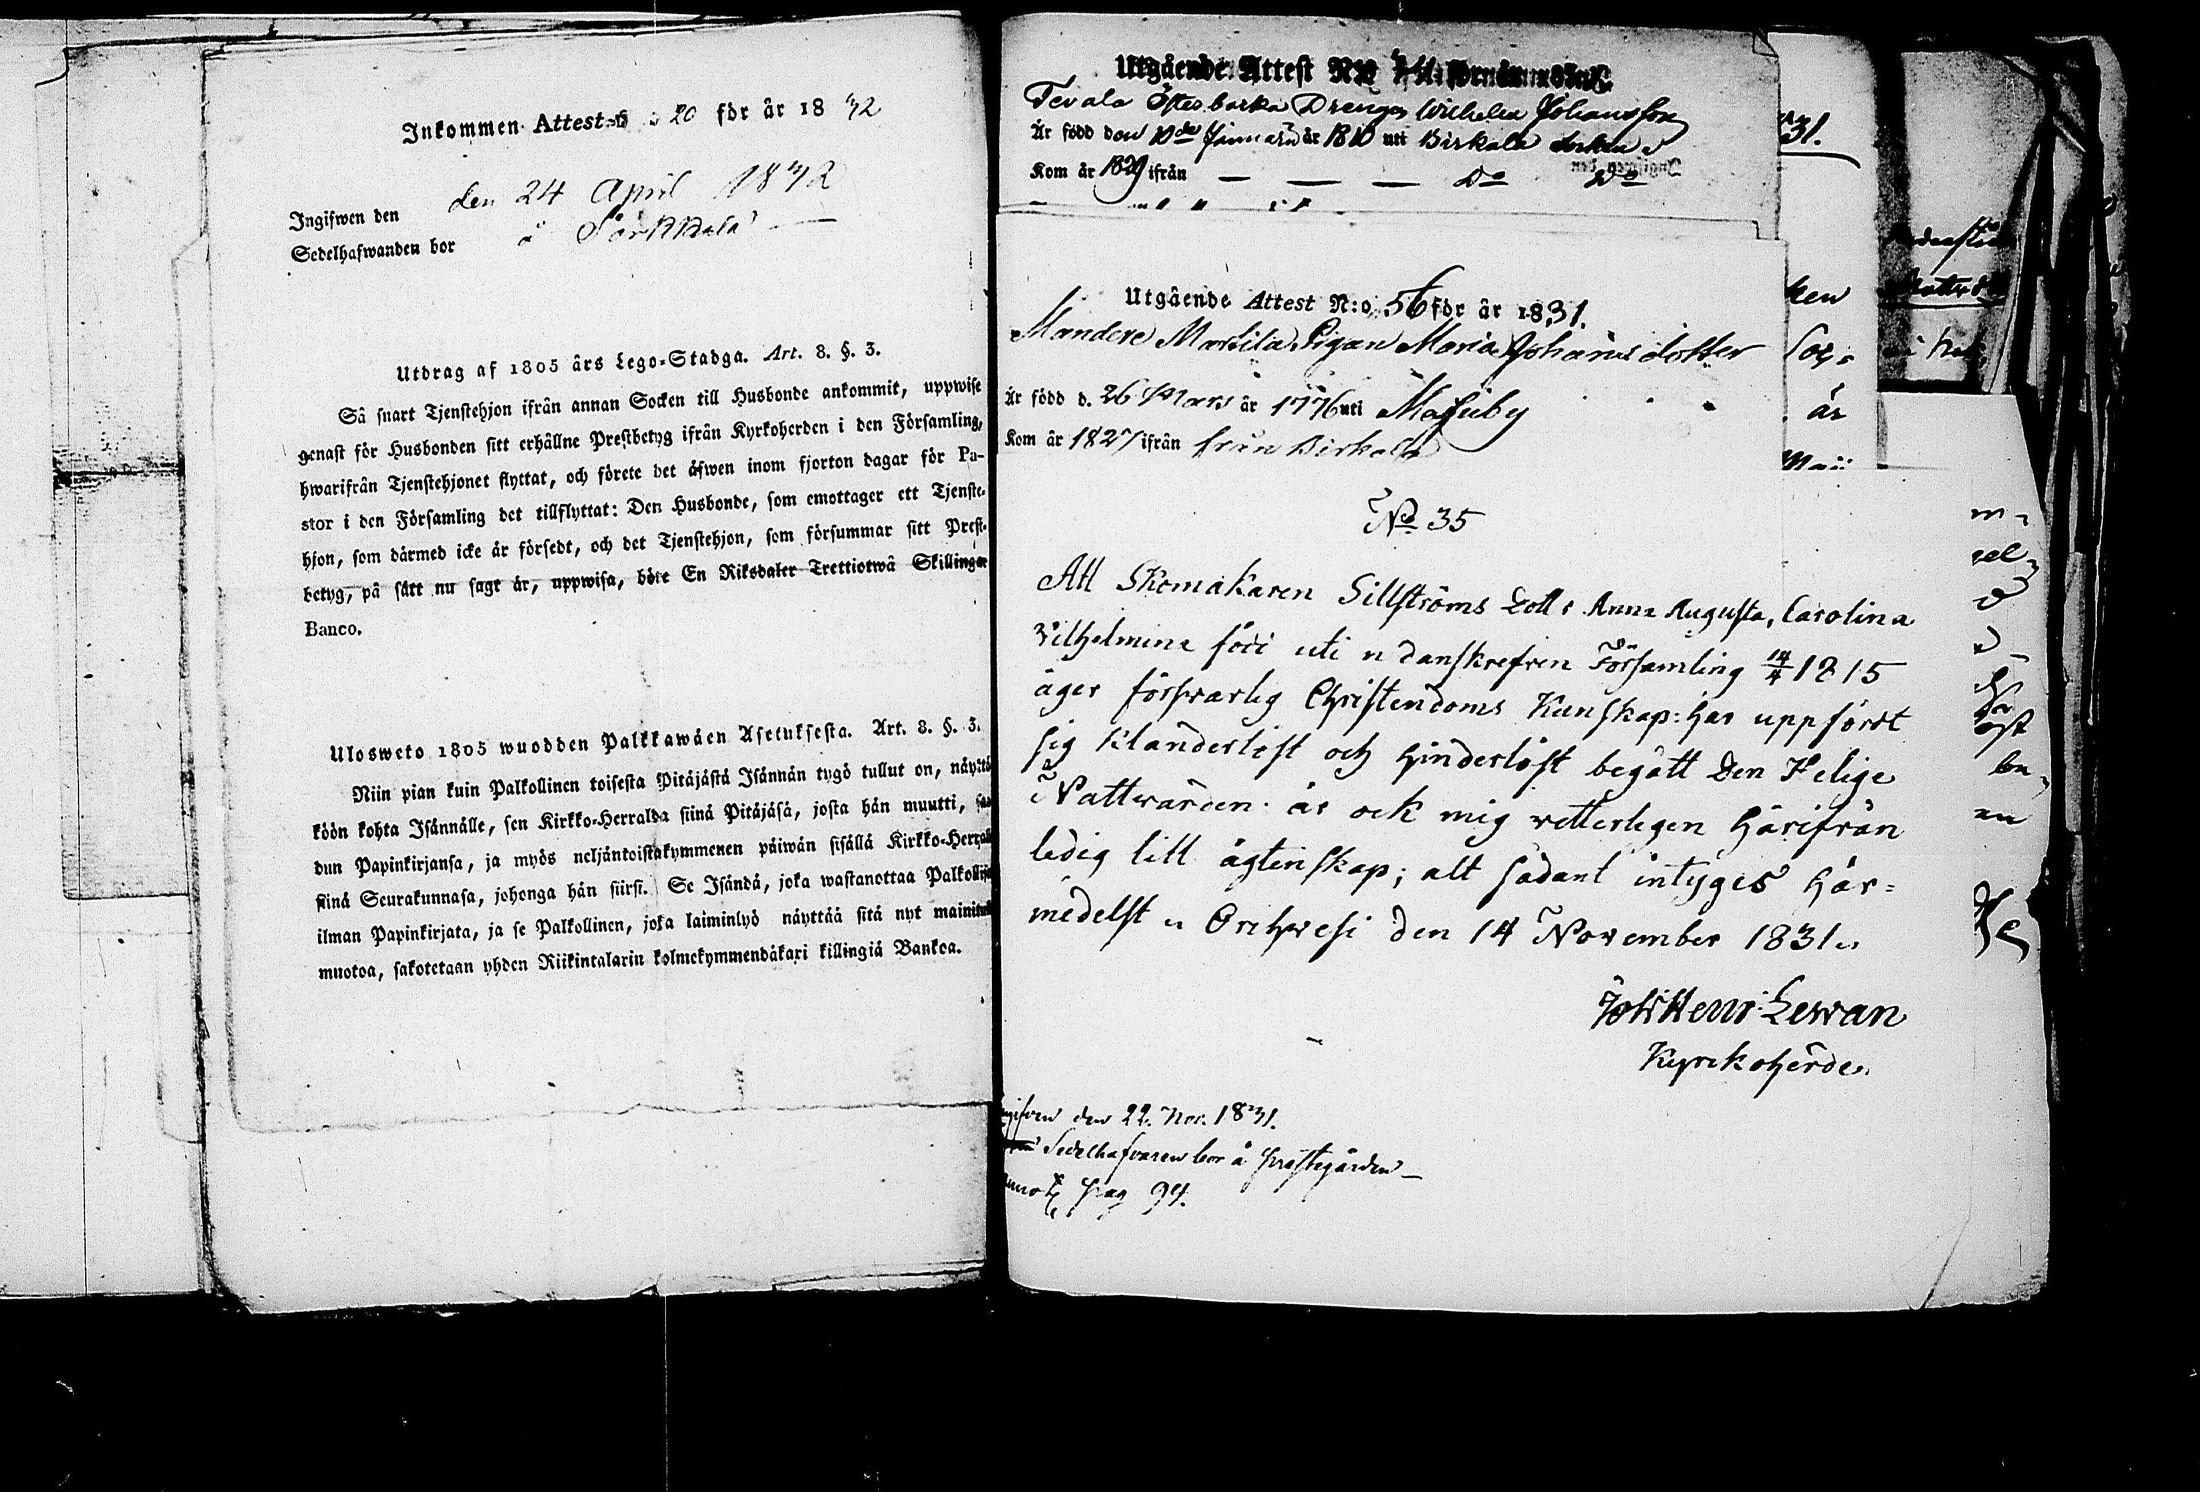 Inkommen Attest N:o 20 för år 1832
Ingifwen den den 24 April 1832
Sedelhafwanden bor å Särkkälä
Utdrag af 1805 års Lego-Stadga. Art. 8. §. 3.
Så snart Tjenstehjon ifrån annan Socken till Husbonde ankommit, uppwise
genast för Husbonden sitt erhållne Prestbetyg ifrån Kyrkoherden i den Församling,
hwarifrån Tjenstehjonet flyttat, och förete det äfwen inom fjorton dagar för Pa-
stor i den Församling det tillflyttat: Den Husbonde, som emottager ett Tjenste-
hjon, som därmed icke är försedt, och det Tjenstehjon, som försummar sitt Prest-
betyg, på sätt nu sagt är, uppwisa, böte En Riksdaler Trettiotwå Skillingar
Banco.
Ulosweto 1805 wuodden Palkkawäen Asetuksesta. Art. 8. §. 3.
Niin pian kuin Palkollinen toisesta Pitäjästä Isännän tygö tullut on, näyttä
köön kohta Isännälle, sen Kirkko-Herralda siinä Pitäjäsä, josta hän muutti, saa
dun Papinkirjansa, ja myös neljäntoistakymmenen päiwän sisällä Kirkko-Herral
siinä Seurakunnasa, johonga hän siirsi. Se Isändä, joka wastanottaa Palkollis
ilman Papinkirjata, ja se Palkollinen, joka laiminlyö näyttää sitä nyt mainitul
muotoa, sakotetaan yhden Riikintalarin kolmekymmendäkaxi killingiä Bankoa.
Utgående Attest N:o
Tevala Öfverbacka Drengen Wilhelm Johansson
Är född den 10de Januarii år 1810 uti Birkala Socken
Kom år 1829 ifrån — — — Do Do
Utgående Attest N:o 56 för år 1831.
Mandere Markila Pigan Maria Johans dotter
Är född d. 26 Mars år 1776 uti Messuby
Kom år 1827 ifrån från Birkala
No 35
Att Skomakaren Sillströms Dott: Anna Augusta, Carolina
Vilhelmina född uti n danskrefven Församling 14/4 1815
äger försvarlig Christendoms Kunskap: har uppfördt
sig klanderlöst och hinderlöst begått Den Helige
Nattvarden. är ock mig vetterligen härifrån
ledig till ägtenskap; alt sådant intyges här-
medelst. Orihvesi den 14 November 1831.
Joh: Henr: Lewan
Kyrckoherde.
ngifven den 22. Nov. 1831.
Sedelhafvaren bor å Prestegården —
pag 94.
31.
ken
år